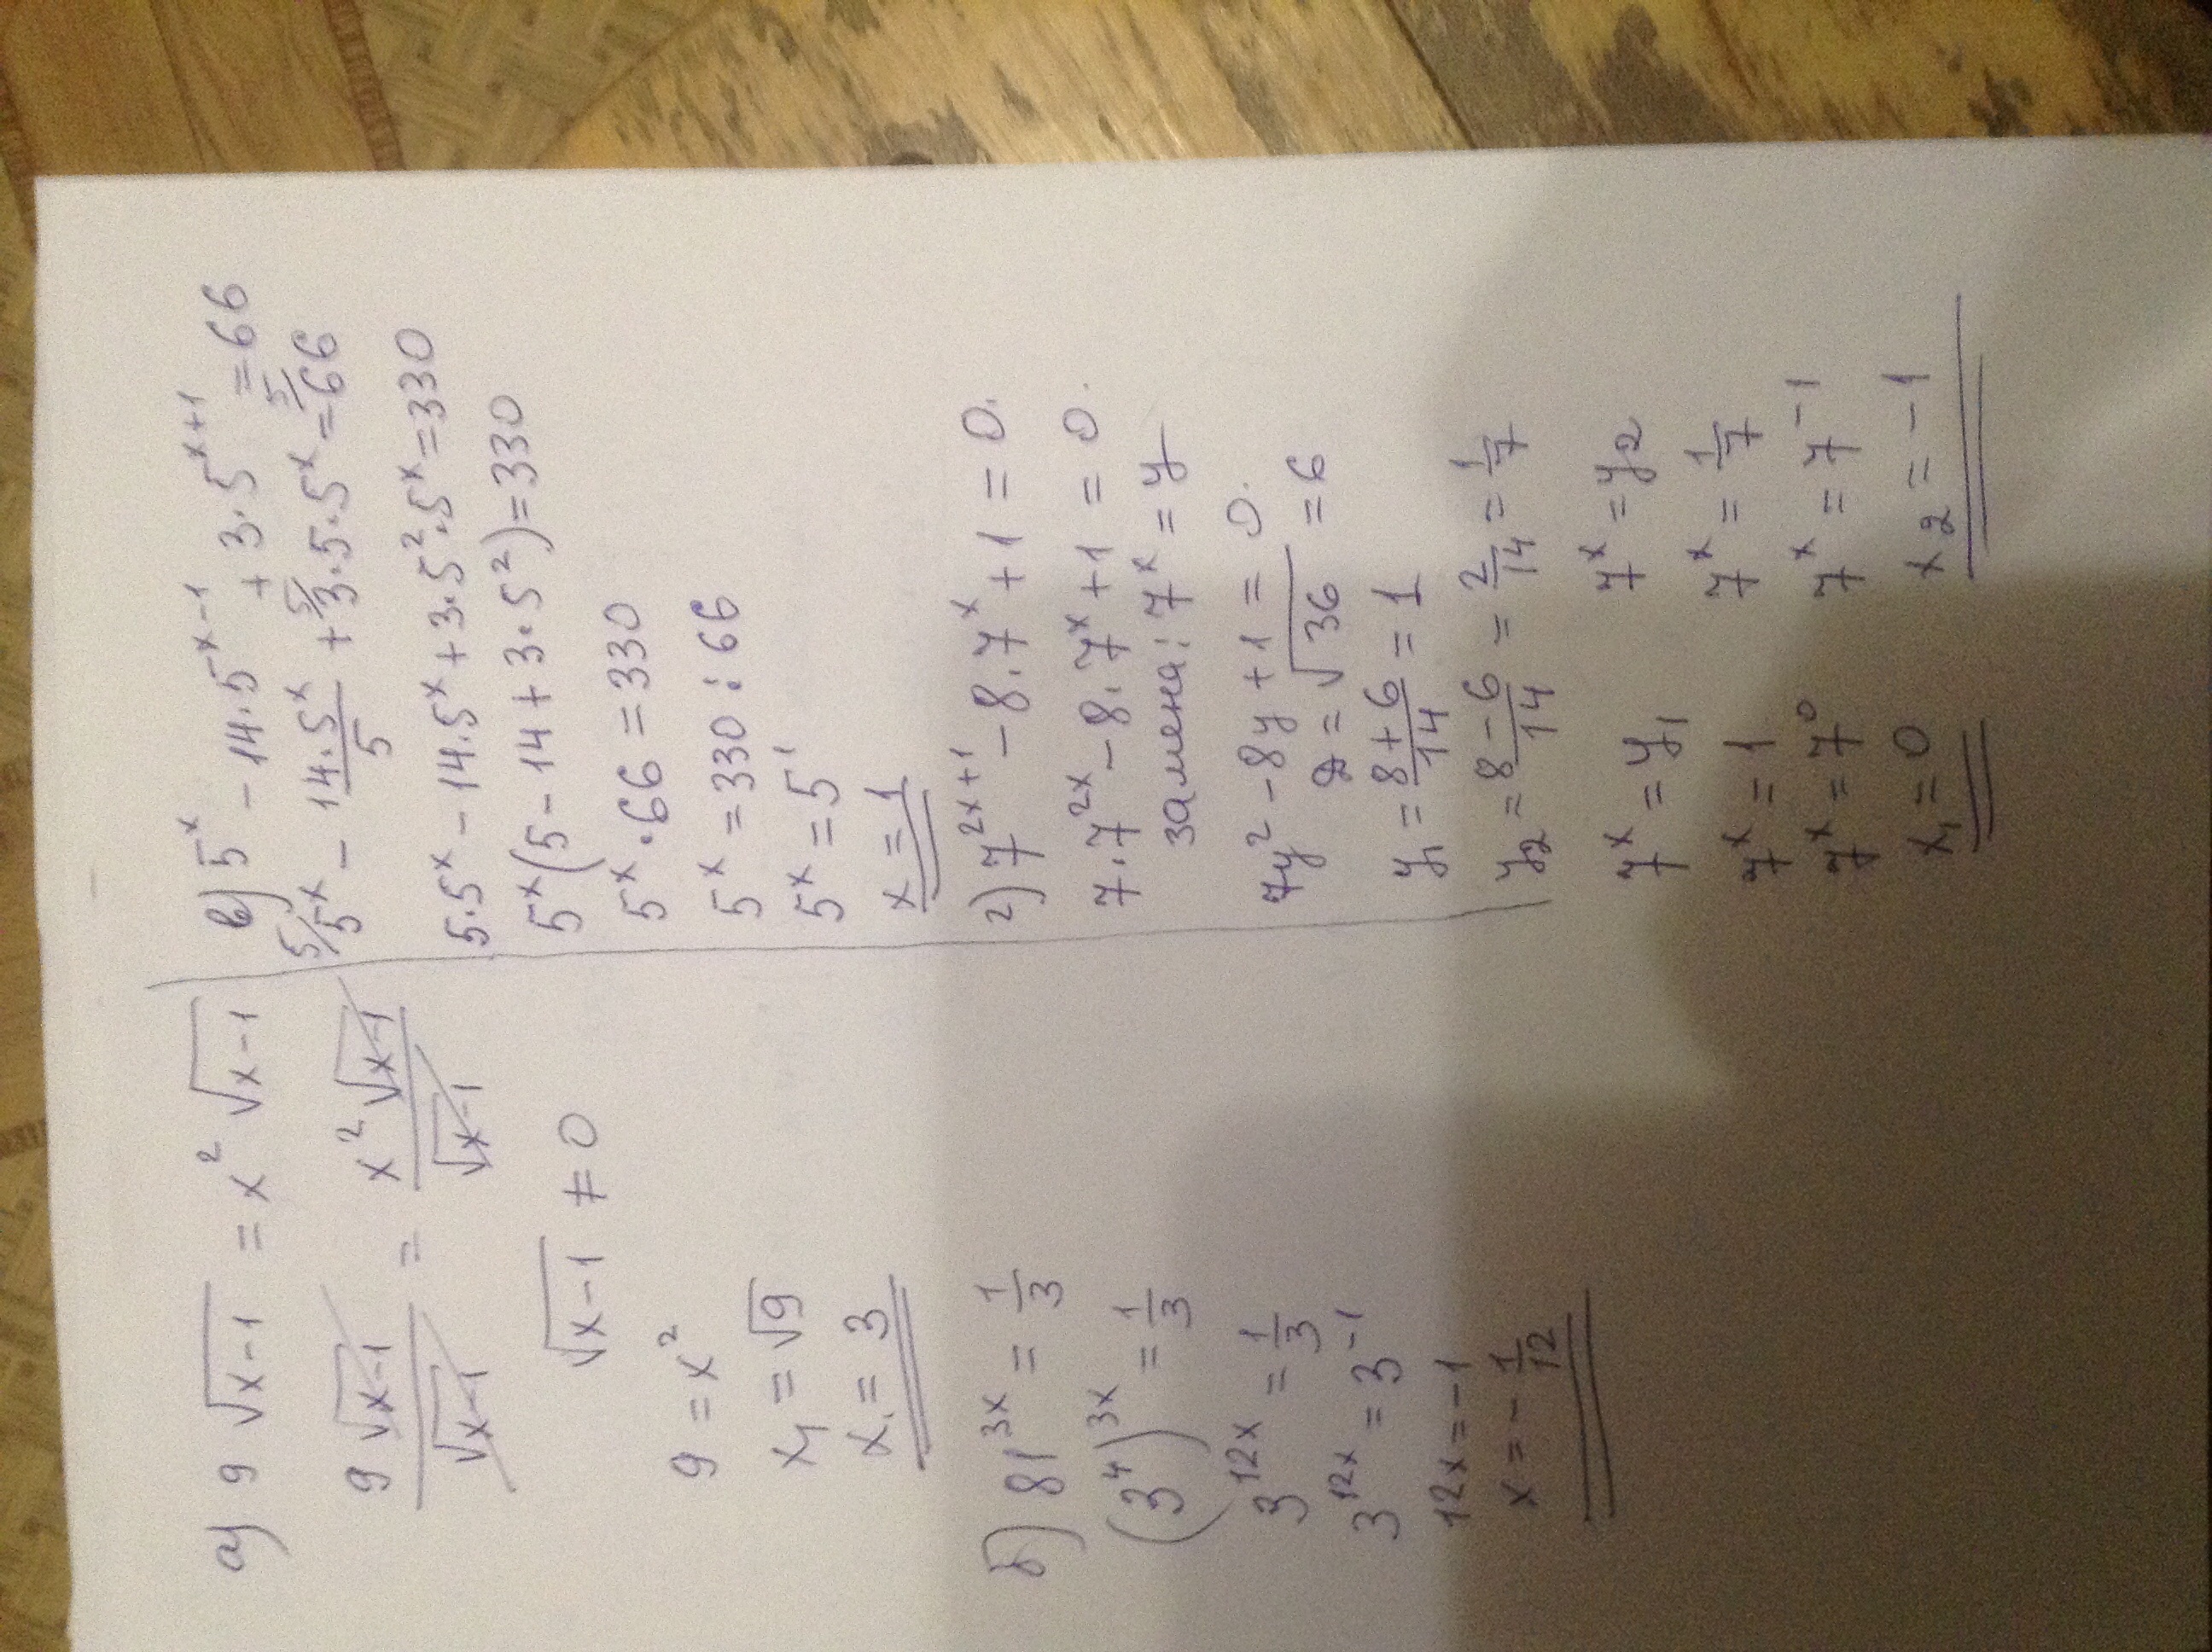 а) 9√(x-1) = x²√(x-1)
9√(x-1)/√(x-1) = x²√(x-1)/√(x-1)
√(x-1) ≠ 0
9 = x²
x₁ = √9
x₁ = 3
б) 81^(3x) = 1/3
(3⁴)^(3x) = 1/3
3^(12x) = 1/3
3^(12x) = 3^(-1)
12x = -1
x = -1/12
в) 5^x - 14·5^(x-1) + 3·5^(x+1) = 66
5/ 5^x - 14·5^x/5 + 5/ 3·5·5^x = 5/ 66
5·5^x - 14·5^x + 3·5²·5^x = 330
5^x(5 - 14 + 3·5²) = 330
5^x·66 = 330
5^x = 330 : 66
5^x = 5¹
x = 1
г) 7^(2x+1) - 8·7^x + 1 = 0.
7·7^(2x) - 8·7^x + 1 = 0.
замена: 7^x = y
7y² - 8y + 1 = 0.
D = √36 = 6
y₁ = (8+6)/14 = 1
y₂ = (8-6)/14 = 2/14 = 1/7
7^x = y₁ 7^x = y₂
7^x = 1 7^x = 1/7
7^x = 7⁰ 7^x = 7^(-1)
x₁ = 0 x₂ = -1